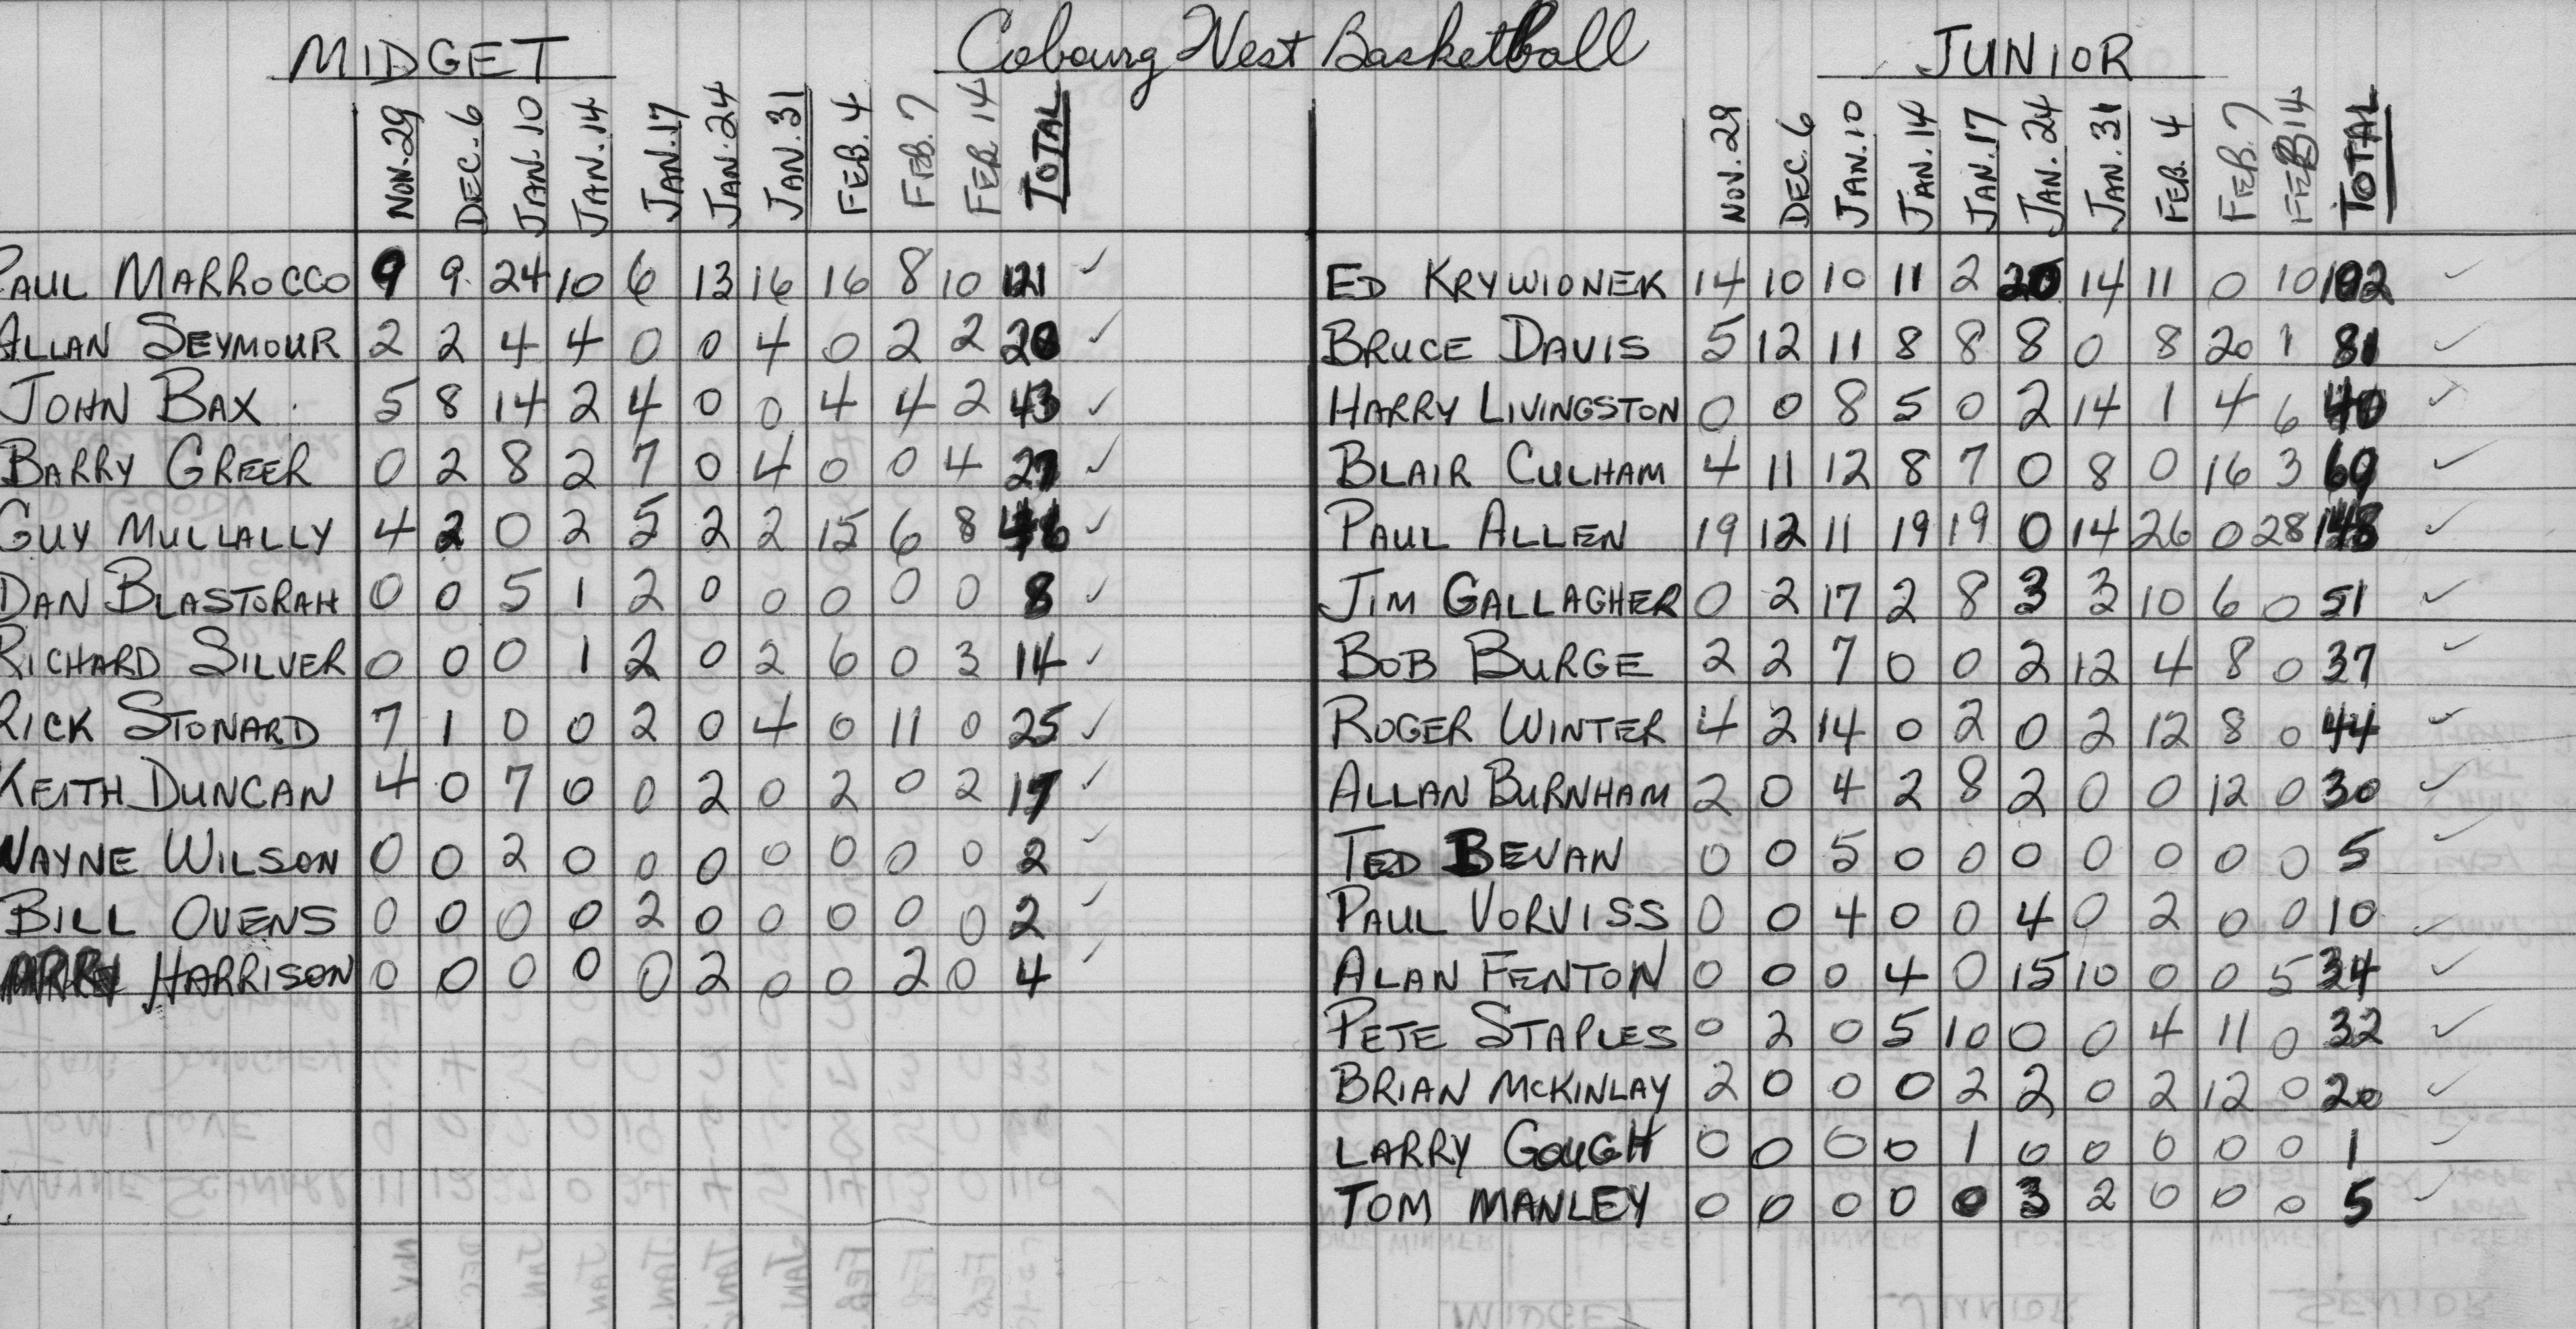 MIDGET Cobourg West Basketball JUNIOR
NOV.29 DEC.6 JAN.10 JAN.14 JAN.17 JAN.24 JAN.31 FEB.4 FEB.7 FEB.14 TOTAL
PAUL MARROCCO 9 9 24 10 6 13 16 16 8 10 121 ✓
ALLAN SEYMOUR 2 2 4 4 0 0 4 0 2 2 20 ✓
JOHN BAX 5 8 14 2 4 0 0 4 4 2 43 ✓
BARRY GREER 0 2 8 2 7 0 4 0 0 4 27 ✓
GUY MULLALLY 4 2 0 2 5 2 2 15 6 8 46 ✓
DAN BLASTORAH 0 0 5 1 2 0 0 0 0 0 8 ✓
RICHARD SILVER 0 0 0 1 2 0 2 6 0 3 14 ✓
RICK STONARD 7 1 0 0 2 0 4 0 11 0 25 ✓
KEITH DUNCAN 4 0 7 0 0 2 0 2 0 2 17 ✓
WAYNE WILSON 0 0 2 0 0 0 0 0 0 0 2 ✓
BILL OVENS 0 0 0 0 2 0 0 0 0 0 2 ✓
HARRISON 0 0 0 0 0 2 0 0 2 0 4 ✓
NOV.29 DEC.6 JAN.10 JAN.14 JAN.17 JAN.24 JAN.31 FEB.4 FEB.7 FEB 14 TOTAL
ED KRYWIONEK 14 10 10 11 2 20 14 11 0 10 102 ✓
BRUCE DAVIS 5 12 11 8 8 8 0 8 20 1 81 ✓
HARRY LIVINGSTON 0 0 8 5 0 2 14 1 4 6 40 ✓
BLAIR CULHAM 4 11 12 8 7 0 8 0 16 3 69 ✓
PAUL ALLEN 19 12 11 19 19 0 14 26 0 28 148 ✓
JIM GALLAGHER 0 2 17 2 8 3 3 10 6 0 51 ✓
BOB BURGE 2 2 7 0 0 2 12 4 8 0 37 ✓
ROGER WINTER 4 2 14 0 2 0 2 12 8 0 44 ✓
ALLAN BURNHAM 2 0 4 2 8 2 0 0 12 0 30 ✓
TED BEVAN 0 0 5 0 0 0 0 0 0 0 5 ✓
PAUL VORVISS 0 0 4 0 0 4 0 2 0 0 10 ✓
ALAN FENTON 0 0 0 4 0 15 10 0 0 5 34 ✓
PETE STAPLES 0 2 0 5 10 0 0 4 11 0 32 ✓
BRIAN MCKINLAY 2 0 0 0 2 2 0 2 12 0 20 ✓
LARRY GOUGH 0 0 0 0 1 0 0 0 0 0 1 ✓
TOM MANLEY 0 0 0 0 0 3 2 0 0 0 5 ✓